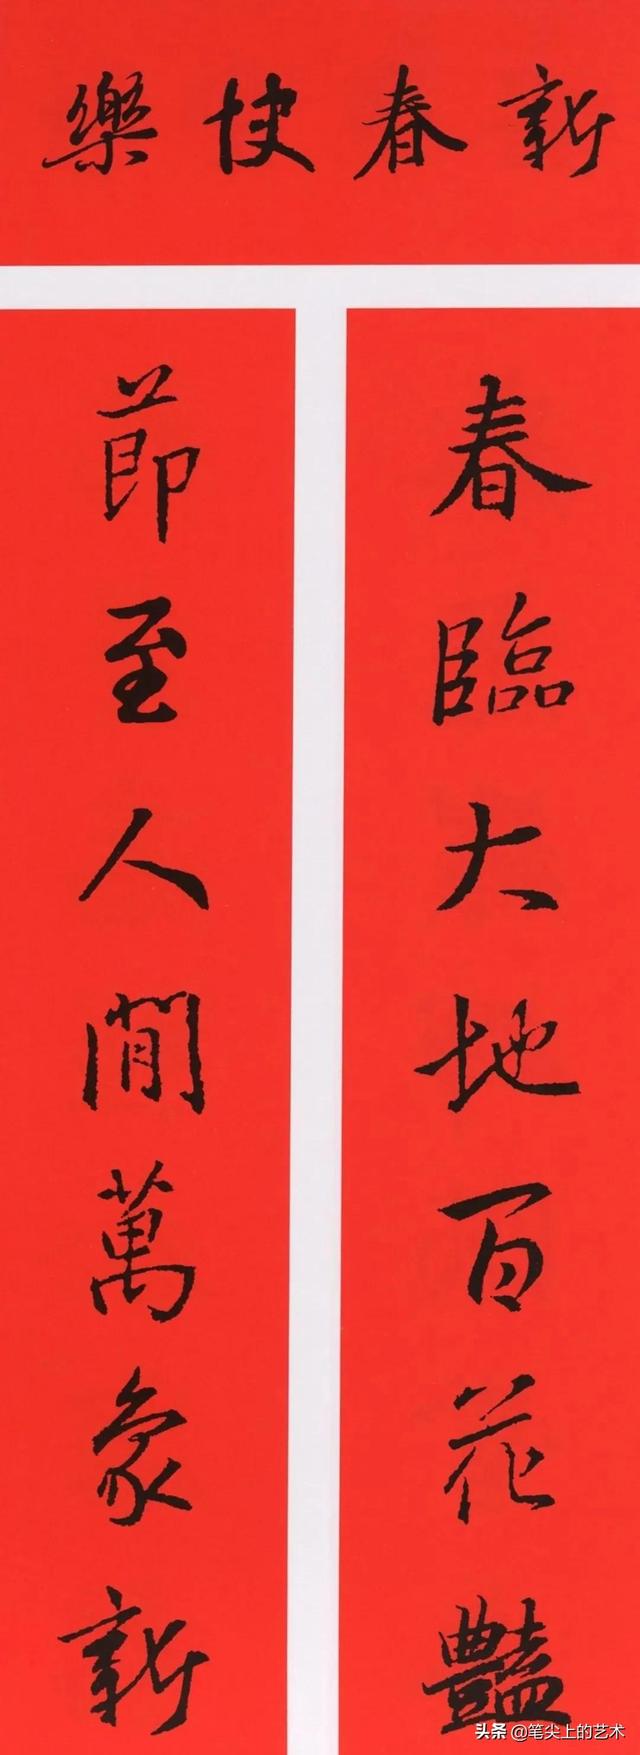 新春快樂
春臨大地百花豔
節至人間萬象新
头条 @笔尖上的艺术